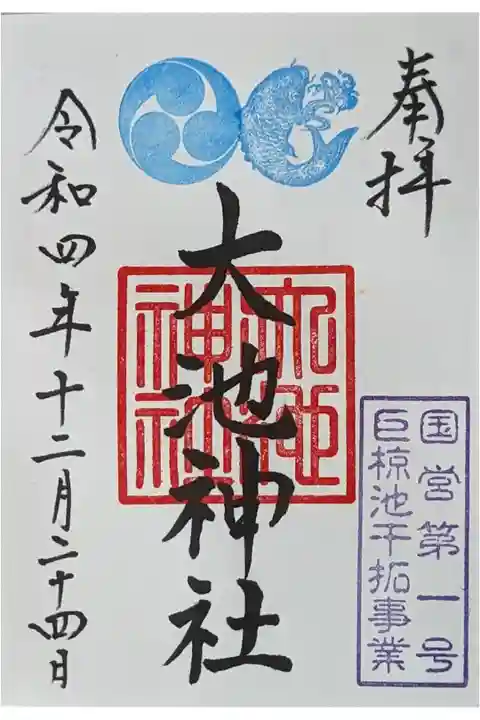 奉拝
大池神社
大池神社
国営第一号
巨椋池干拓事業
令和四年十二月二十四日